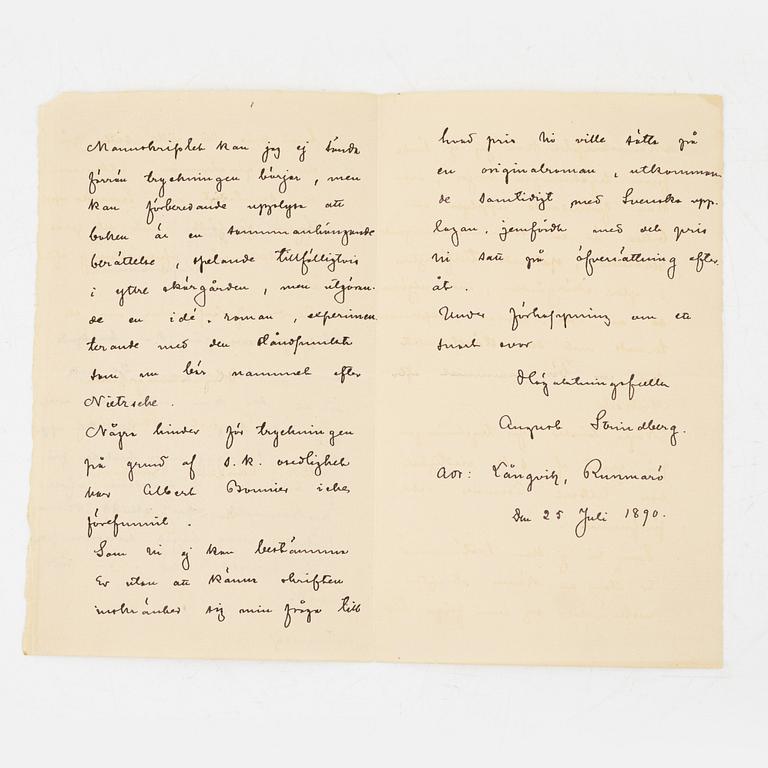 Manuskriptet kan jag ej sända
förrän tryckningen börjar, men
kan förberedande upplysa att
boken är en sammanhängande
berättelse, spelande tillfälligtvis
i yttre skärgården, men utgöran-
de en idé-roman, experimen-
terande med den ståndpunkt
som nu bär nammet efter
Nietzsche.
Några hinder för tryckningen
på grund af s.k. osedlighet
har Albert Bonnier icke
förefunnit.
Som Ni ej kan bestämma
Er utan att känna skriften
inskränker sig min fråga till
hvad pris Ni ville sätta på
en originalroman, utkomman-
de samtidigt med Svenska upp-
lagan, jemförde med det pris
Ni satt på öfversättning efter-
åt.
Under förhoppning om ett
snart svar
Högaktningsfullt
August Strindberg.
Adr: Långvik, Runmarö
den 25 Juli 1890.